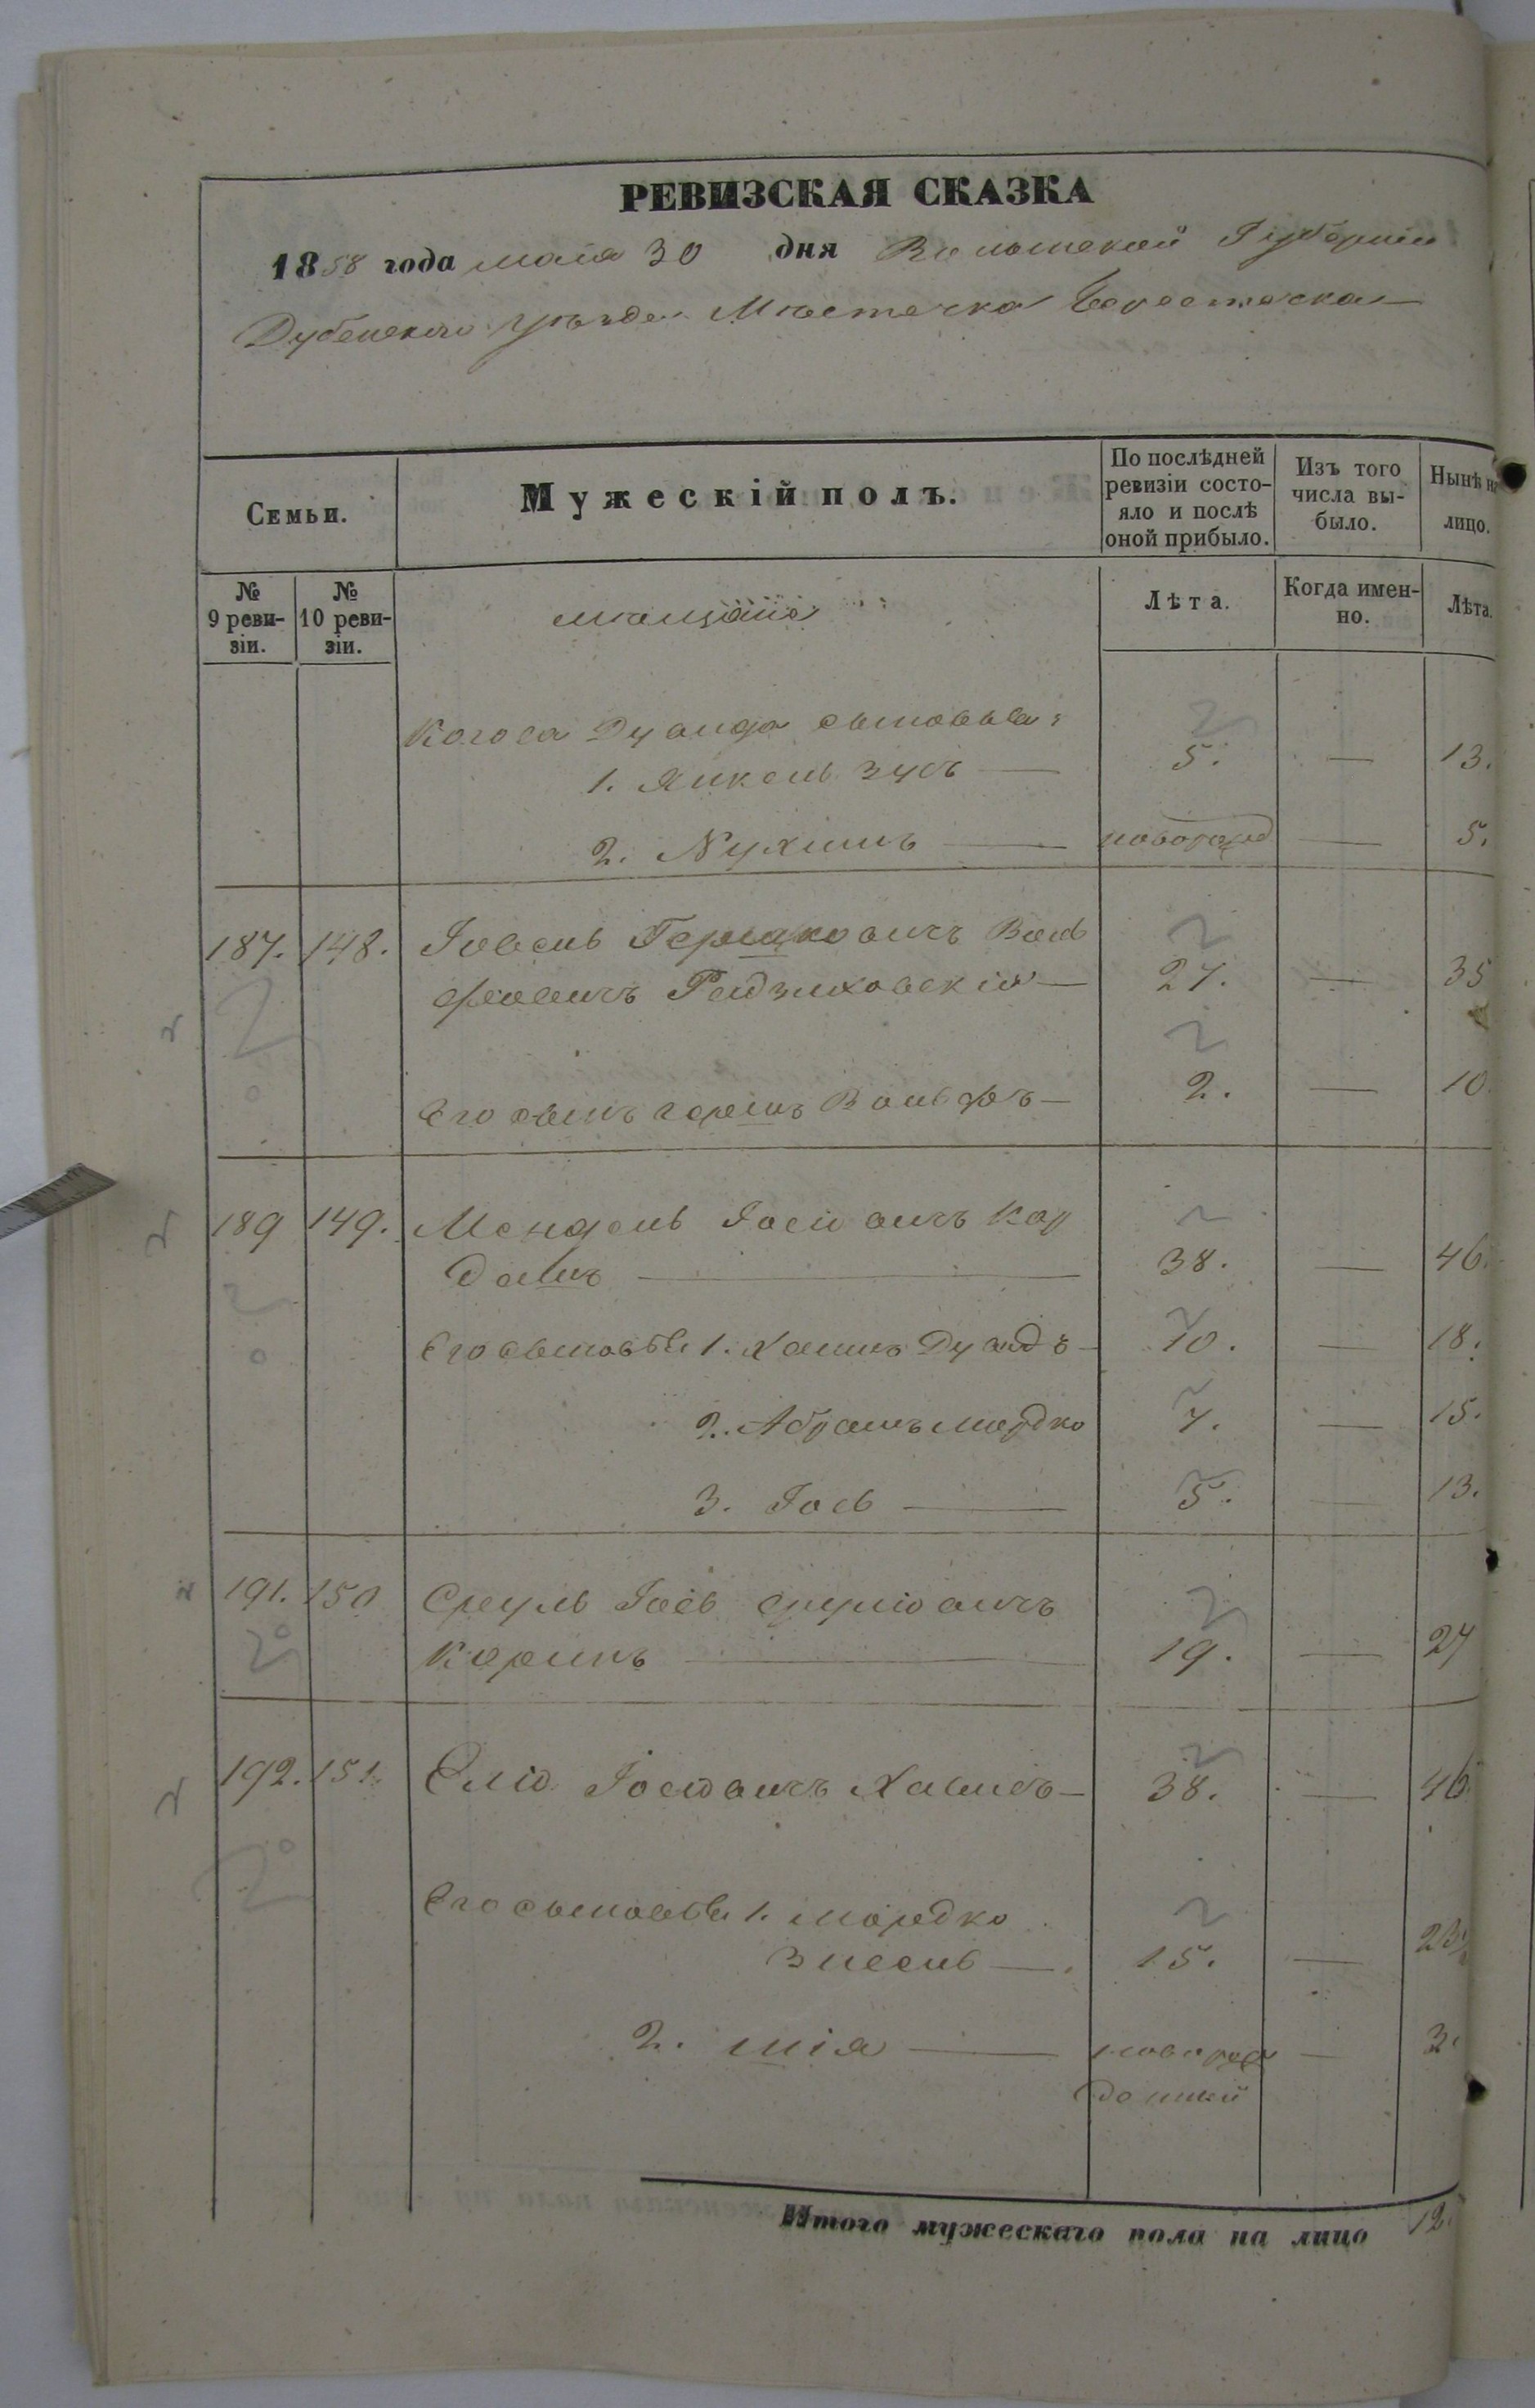 РЕВИЗСКАЯ СКАЗКА
1858 года мая 30 дня Волынской Губернии
Дубенскаго уѣзда Мѣстечка Берестечка
Семьи.
Мужескій полъ.
По послѣдней ревизіи состо-яло и послѣ оной прибыло.
Изъ того числа вы-было.
Нынѣ на лицо.
№ 9 реви-зіи.
№ 10 реви-зіи.
мѣщане
Лѣта.
Когда имен-но.
Лѣта.
Дувида сыновья:
1. Янкель Зусь — 5. — 13.
2. Нухимъ — новорожд — 5.
187. 148. Іовель Гершковичъ Воль
фовичъ — 27. — 35
Его сынъ Гершъ Вольфъ — 2. — 10.
189 149. Мендель Іосіовичъ Кар
дашъ — 38. — 46.
Его сыновья 1. Хаимъ Дувидъ — 10. — 18.
2. Абрамъ Мордко 7. — 15.
3. Іось — 5. — 13.
191. 150 Сруль Іось Сруліовичъ
Кормъ — 19. — 27
192. 151. Еліо Іосіовичъ — 38. — 46
Его сыновья 1. Мордко
Зисель — 15. — 23
2. Шія — новорож — 3.
денный
Итого мужескаго пола на лицо 12.